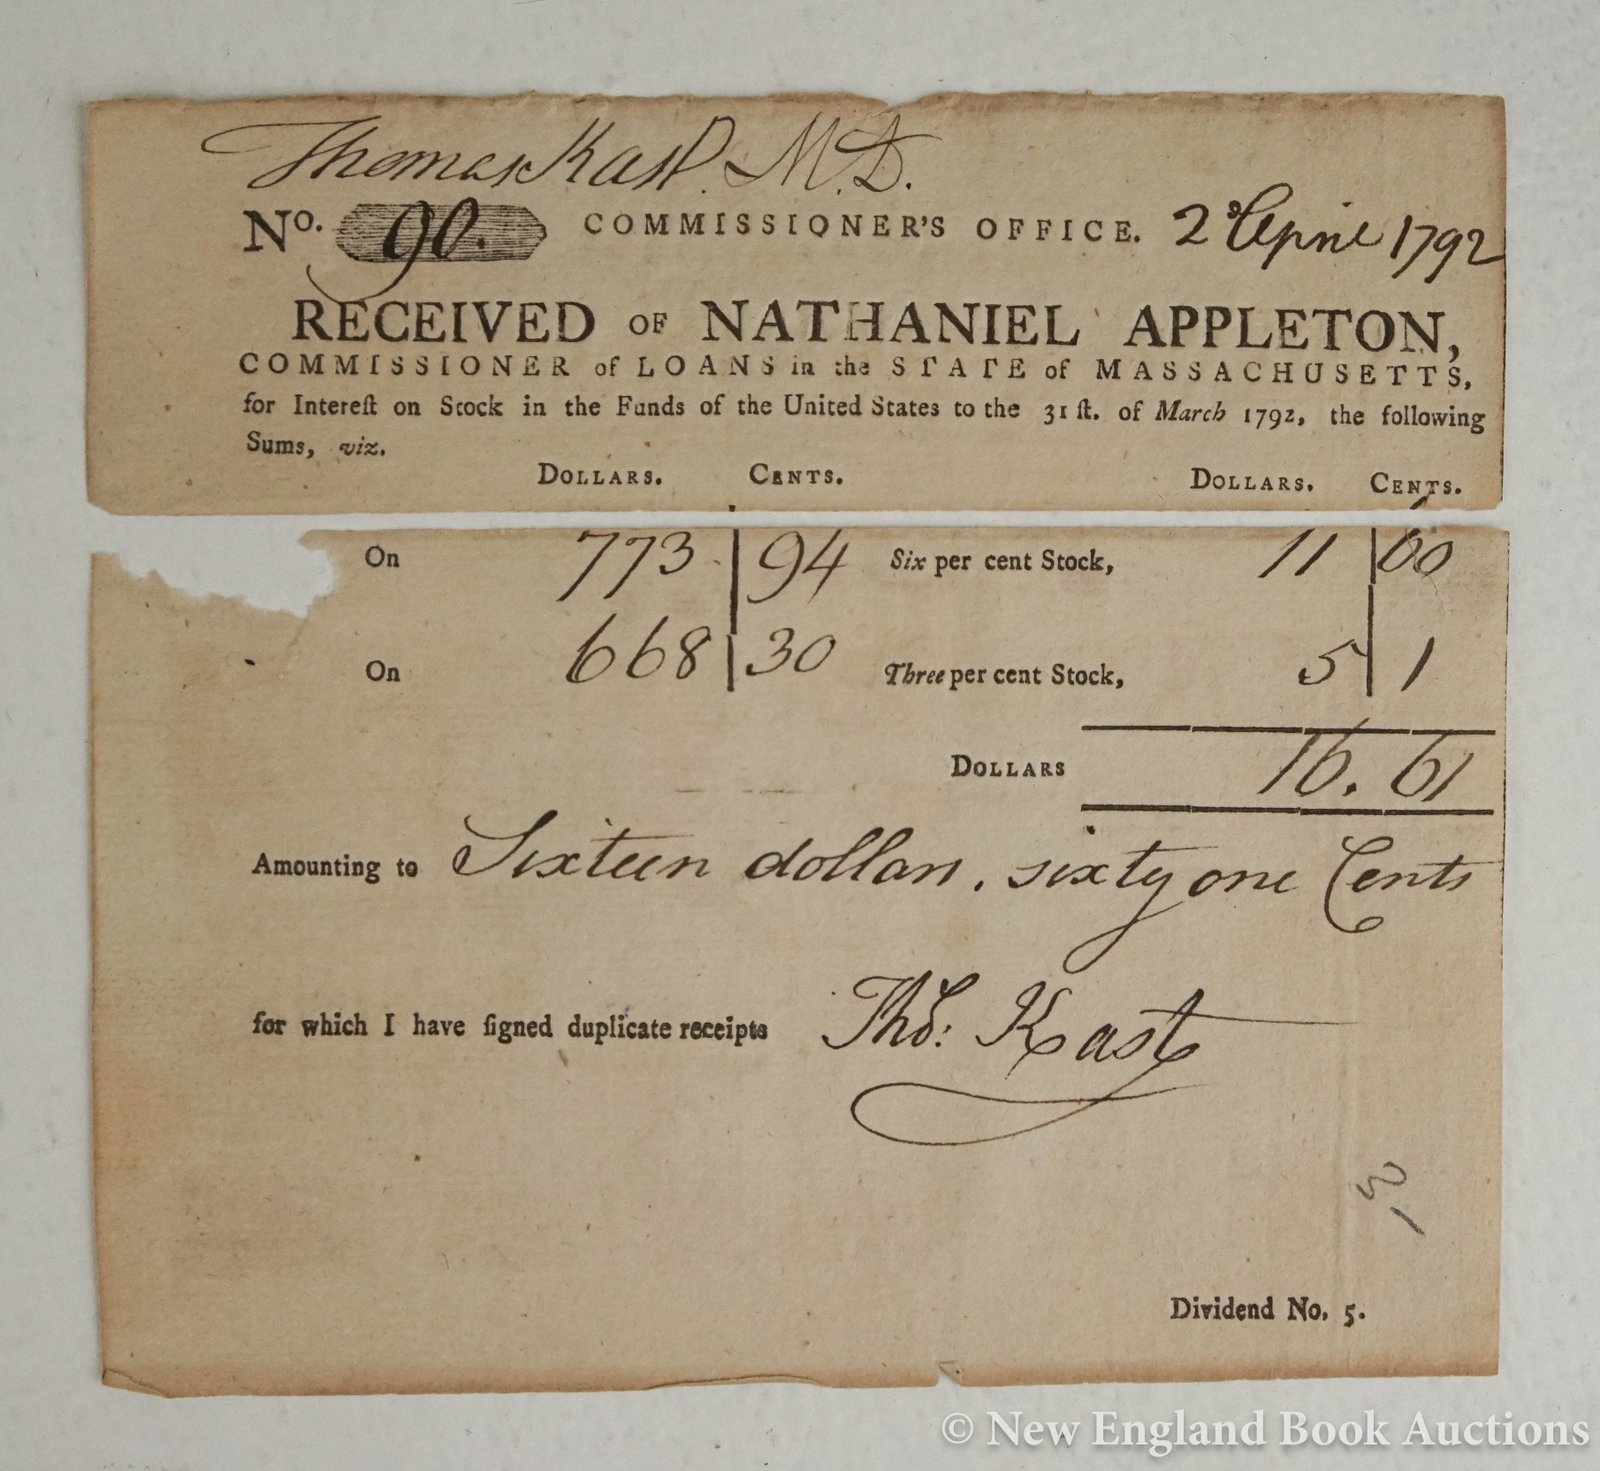 Thomas Kast. M.D.
No. 90. COMMISSIONER'S OFFICE. 2d April 1792
RECEIVED OF NATHANIEL APPLETON,
COMMISSIONER of LOANS in the STATE of MASSACHUSETTS,
for Intereſt on Stock in the Funds of the United States to the 31 ſt. of March 1792, the following
Sums, viz.
DOLLARS. CENTS. DOLLARS. CENTS.
On 773 94 Six per cent Stock, 11 60
On 668 30 Three per cent Stock, 5 1
DOLLARS 16. 61
Amounting to Sixteen dollars, sixty one Cents
for which I have ſigned duplicate receipts Thos: Kast
Dividend No. 5.
© New England Book Auctions